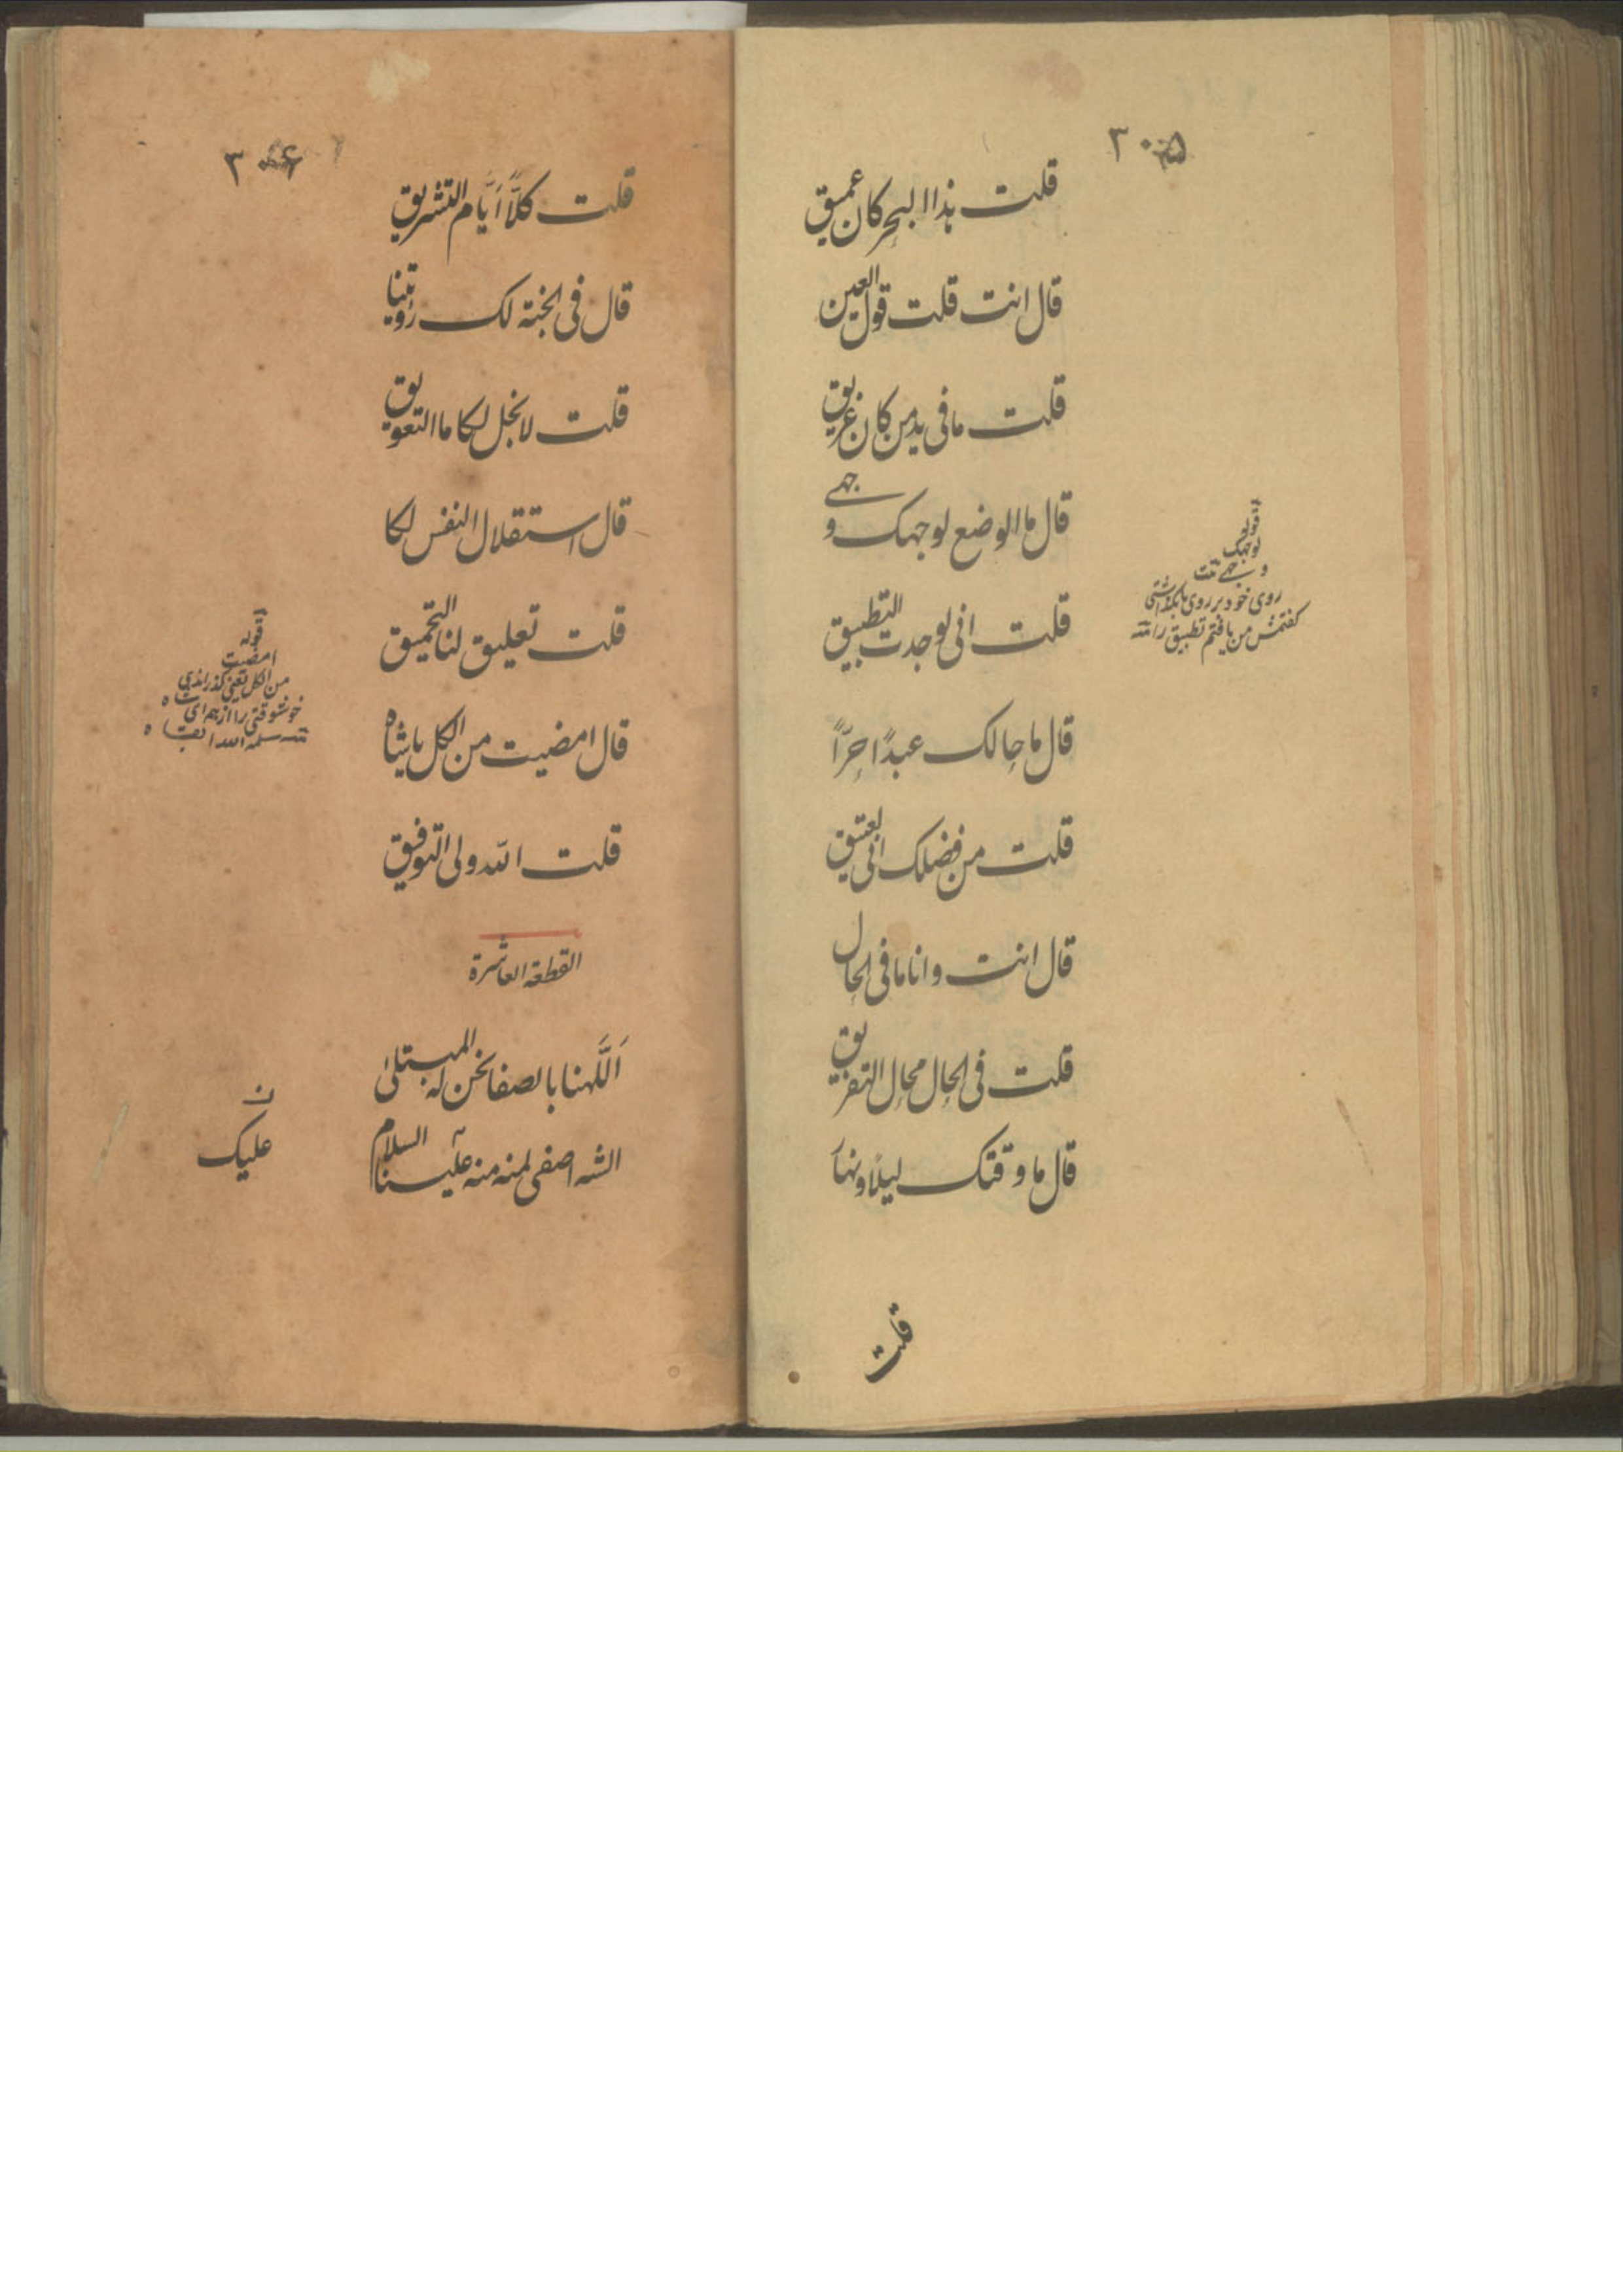 ٣٠٥
قلت هذا البحر كان عميق
قال انت قلت قول العين
قلت ما فى يد من كان غريق
قال ما الوضع لوجهك وجهے
قلت انى لوجدت التطبيق
قال ما حالك عبدًا حرًّا
قلت من فضلك انى لعتيق
قال انت وانا ما فى الحال
قلت فى الحال محال التفريق
قال ما وقتك ليلًا ونهار
قلت
قوله
لوجهك
وجهے
روى خود بر روى ما بگذاشتى
گفتمش من يافتم تطبيق را
٣٠٦
قلت كلًّا أيّام التشريق
قال فى الجنة لك رؤيتنا
قلت لا بخل لكا ما التعويق
قال استقلال النفس لكا
قلت تعليق لنا التحميق
قال امضيت من الكل يا شاه
قلت الله ولى التوفيق
القطعة العاشرة
اللّهنا بالصفا نحن له المبتلىٰ
الله اصفى لمنه منه علينا السلام
ن
عليك
قوله
امضيت
من الكل يعنى گذرانيدى
خوشوقتى را از همه اى شاه
سلمه الله ابقاه